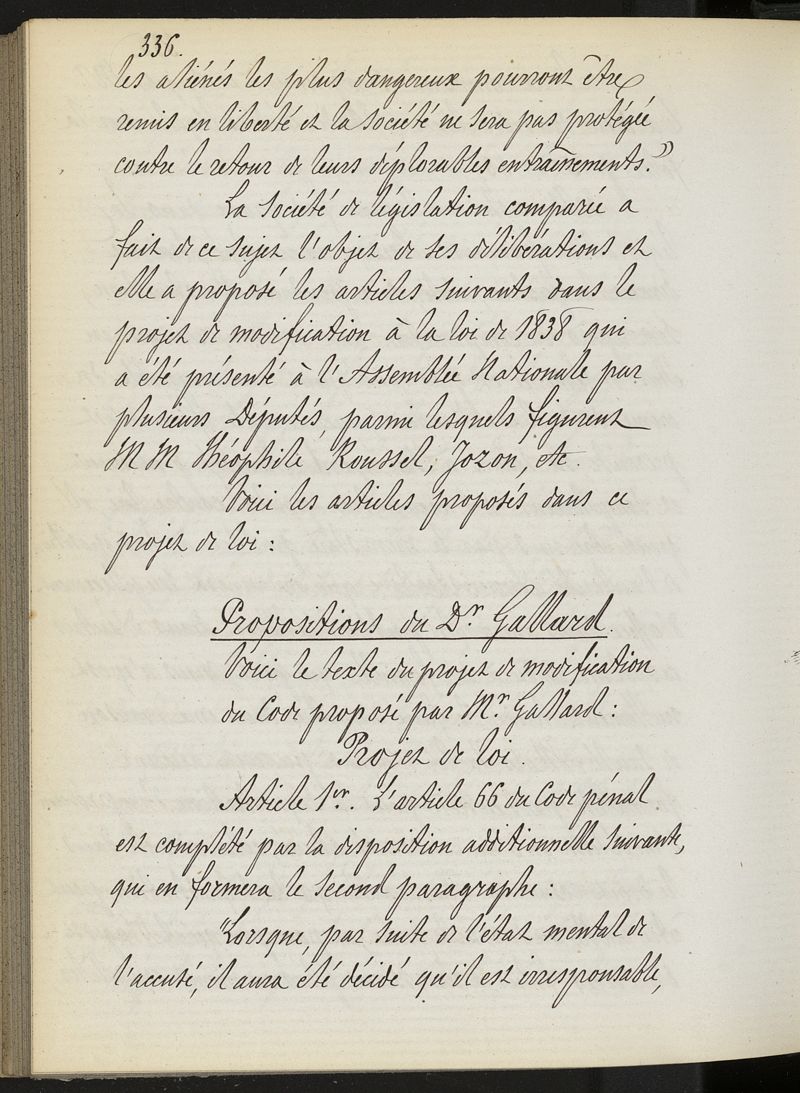 336.
les aliénés les plus dangereux pourront être
remis en liberté et la société ne sera pas protégée
contre le retour de leurs déplorables entraînements."
La Société de législation comparée a
fait de ce sujet l'objet de ses délibérations et
elle a proposé les articles suivants dans le
projet de modification à la loi de 1838 qui
a été présenté à l'Assemblée Nationale par
plusieurs Députés, parmi lesquels figurent
MM Théophile Roussel, Jozon, etc.
Voici les articles proposés dans ce
projet de loi :
Propositions du Dr. Gallard.
Voici le texte du projet de modification
du Code proposé par Mr. Gallard :
Projet de loi.
Article 1er. L'article 66 du Code pénal
est complété par la disposition additionnelle suivante,
qui en formera le second paragraphe :
"Lorsque, par suite de l'état mental de
l'accusé, il aura été décidé qu'il est irresponsable,